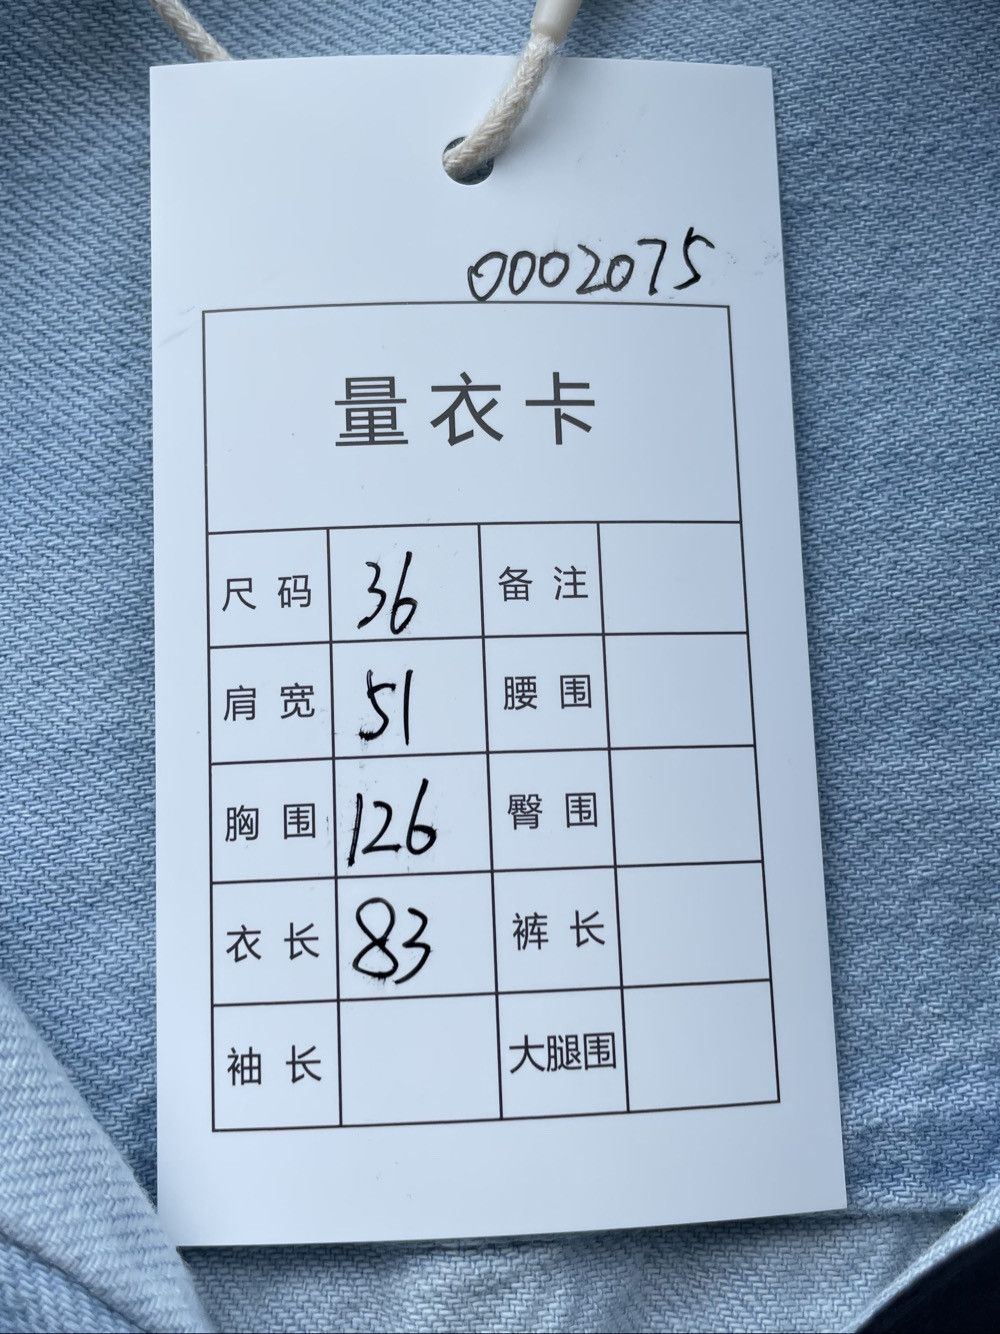 0002075
量衣卡
尺码 36 备注
肩宽 51 腰围
胸围 126 臀围
衣长 83 裤长
袖长 大腿围